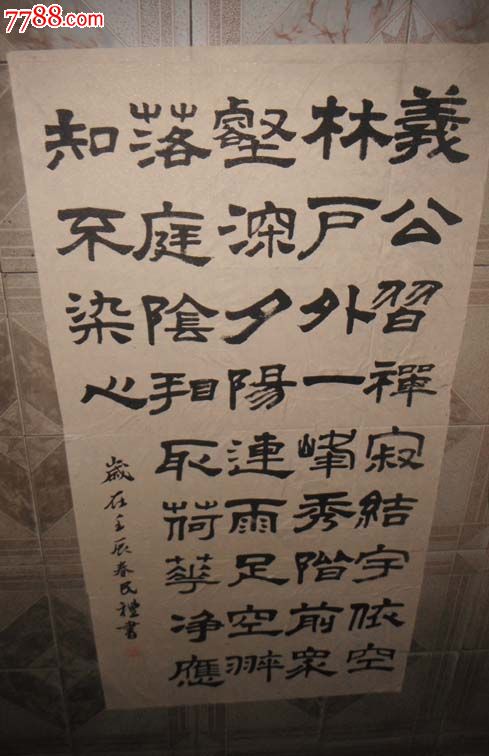 7788.com
中国收藏热线
義公習禪寂結宇依空
林户外一峰秀階前眾
壑深夕陽連雨足空翠
落庭陰相取荷華净應
知不染心
歲在壬辰春民禮書